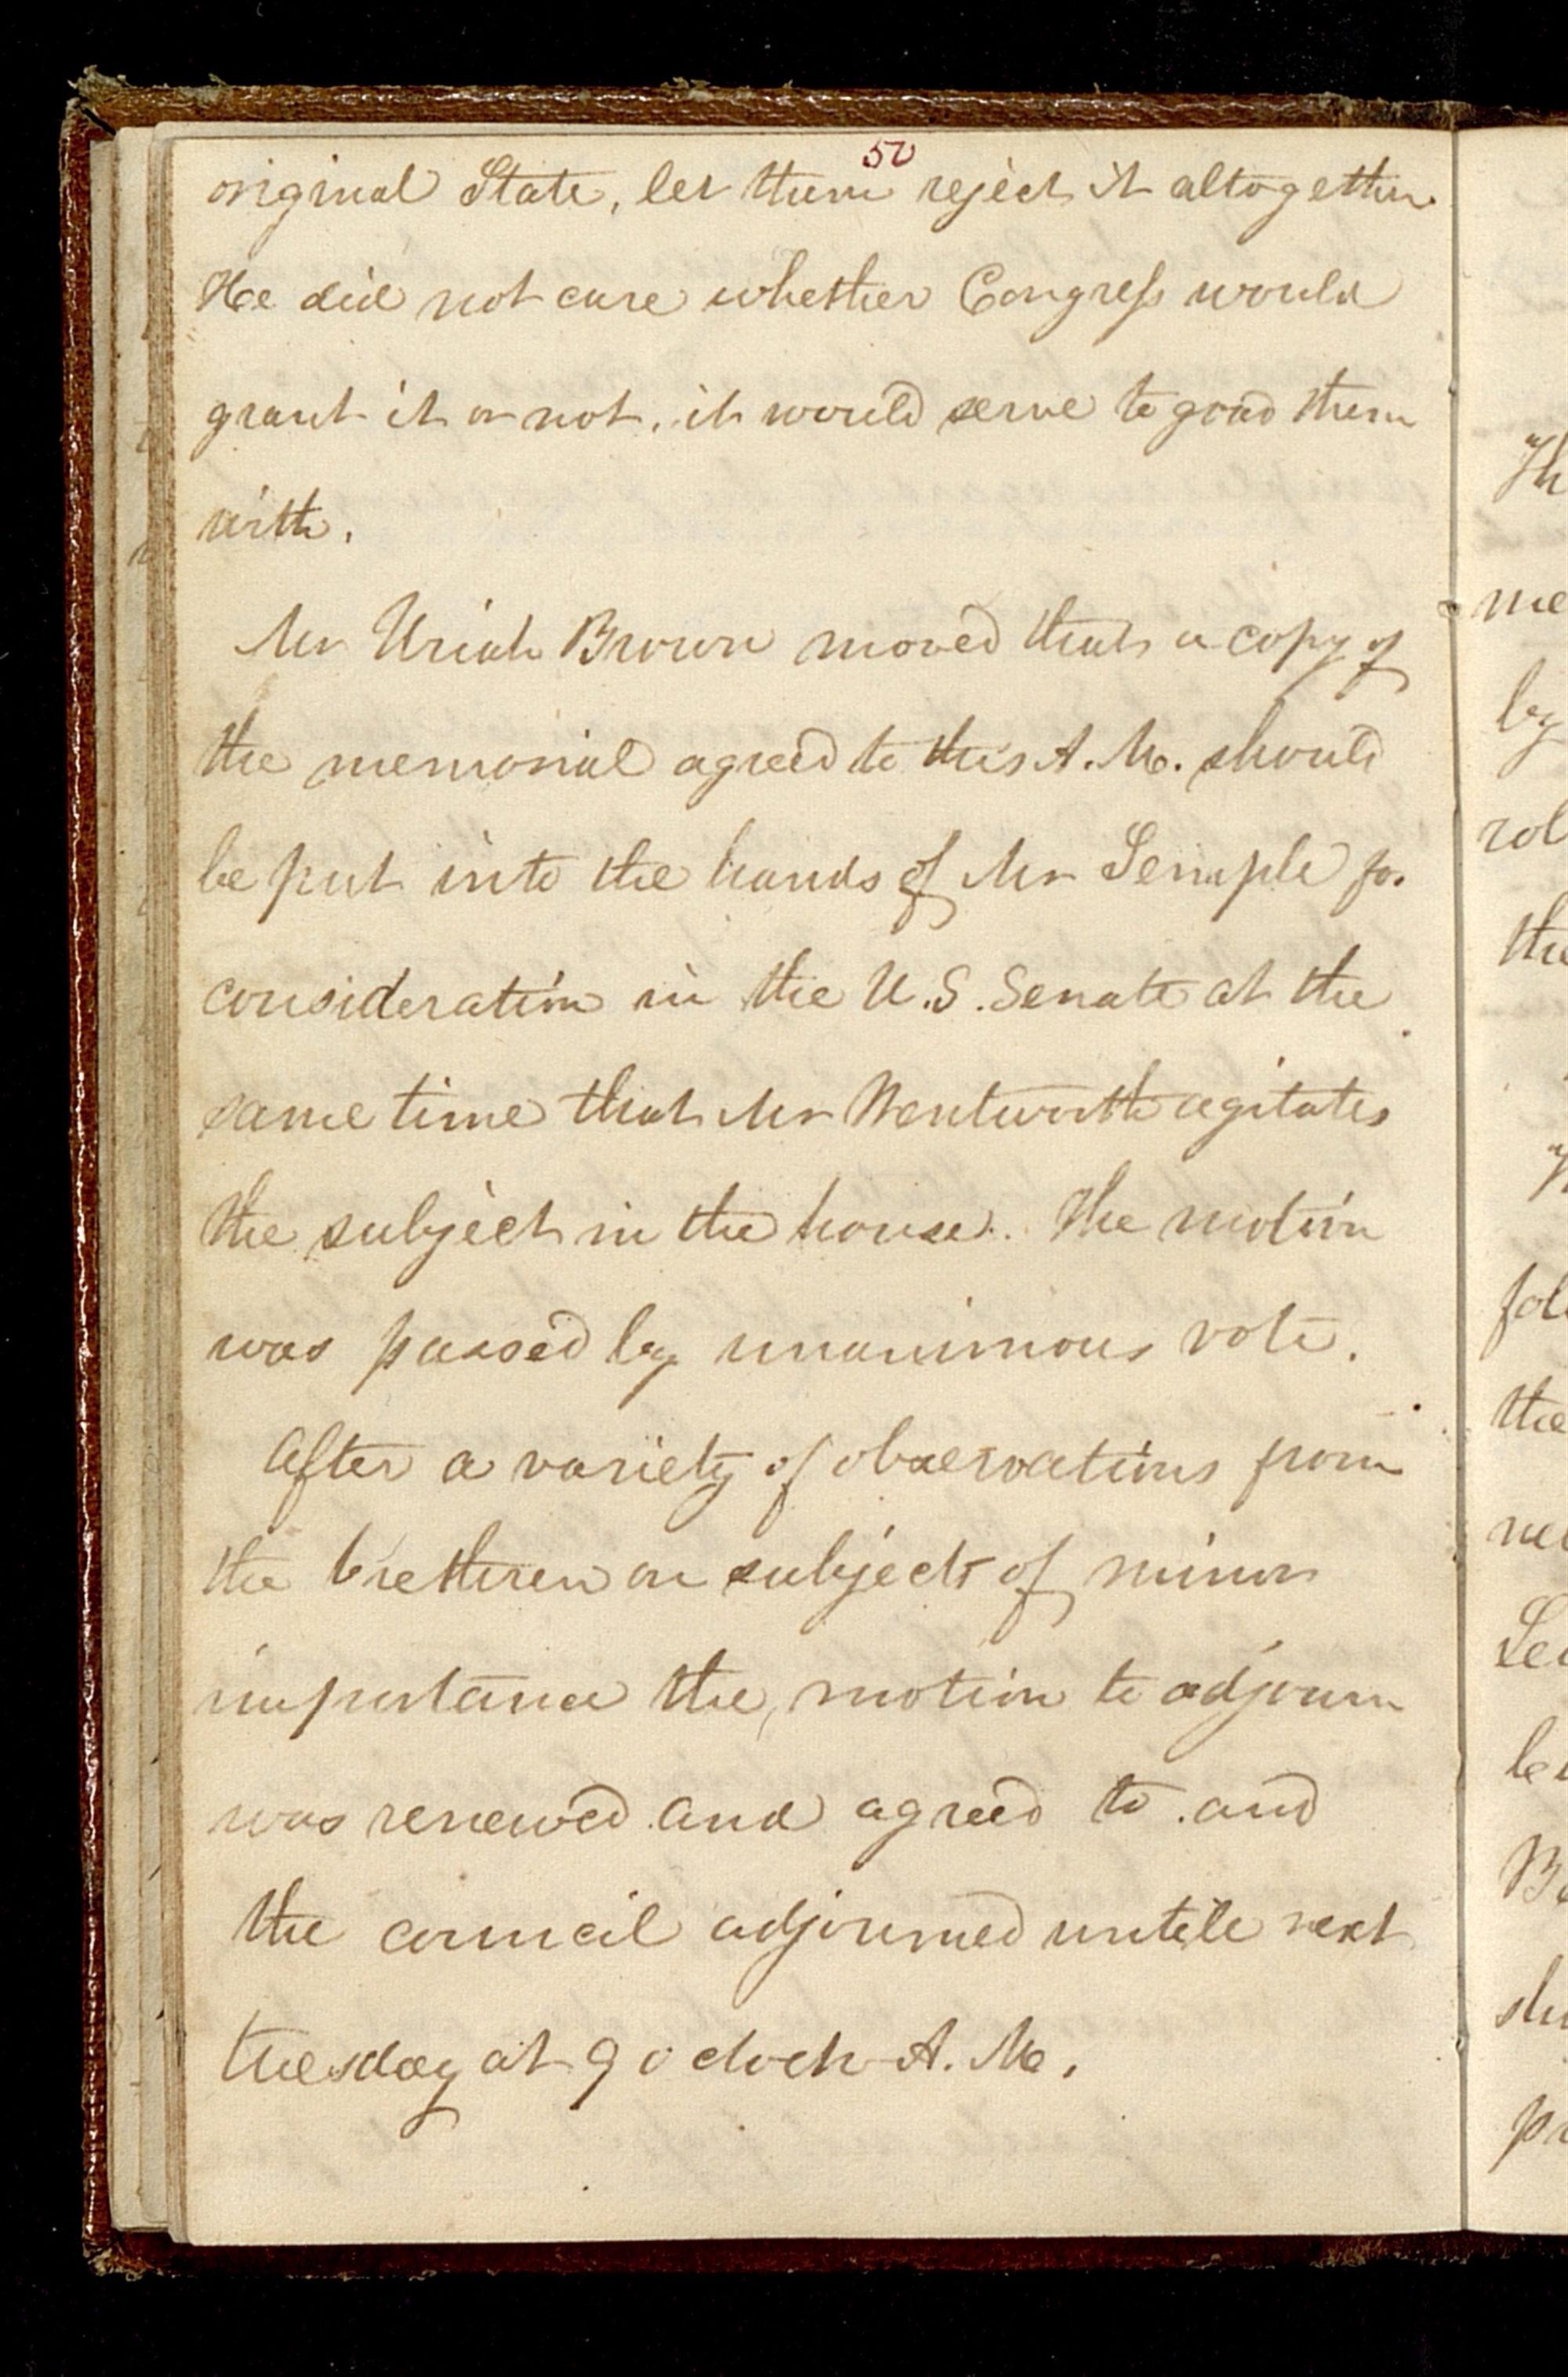 50
original State, let them reject it altogether.
He did not care whether Congress would
grant it or not, it would serve to goad them
with.
Mr Uriah Brown moved that a copy of
the memorial agreed to this A.M. should
be put into the hands of Mr Semple for
consideration in the U.S. Senate at the
same time that Mr Wentworth agitates
the subject in the house. The motion
was passed by unanimous vote.
After a variety of observations from
the brethren on subjects of minor
importance the, motion to adjourn
was renewed and agreed to and
the council adjourned untill next
tuesday at 9 o clock A.M.
Th
me
by
rol
the
fol
the
be
B
sh